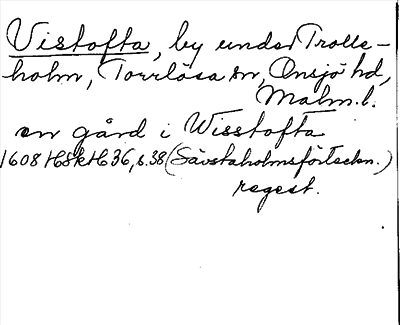 Vistofta, by under Trolle-
holm, Torrlösa sn, Onsjö hd,
Malm.l.
en gård i Wisstofta
1608 HSkH 36, s.38 (Sävstaholmsförteckn.)
regest.